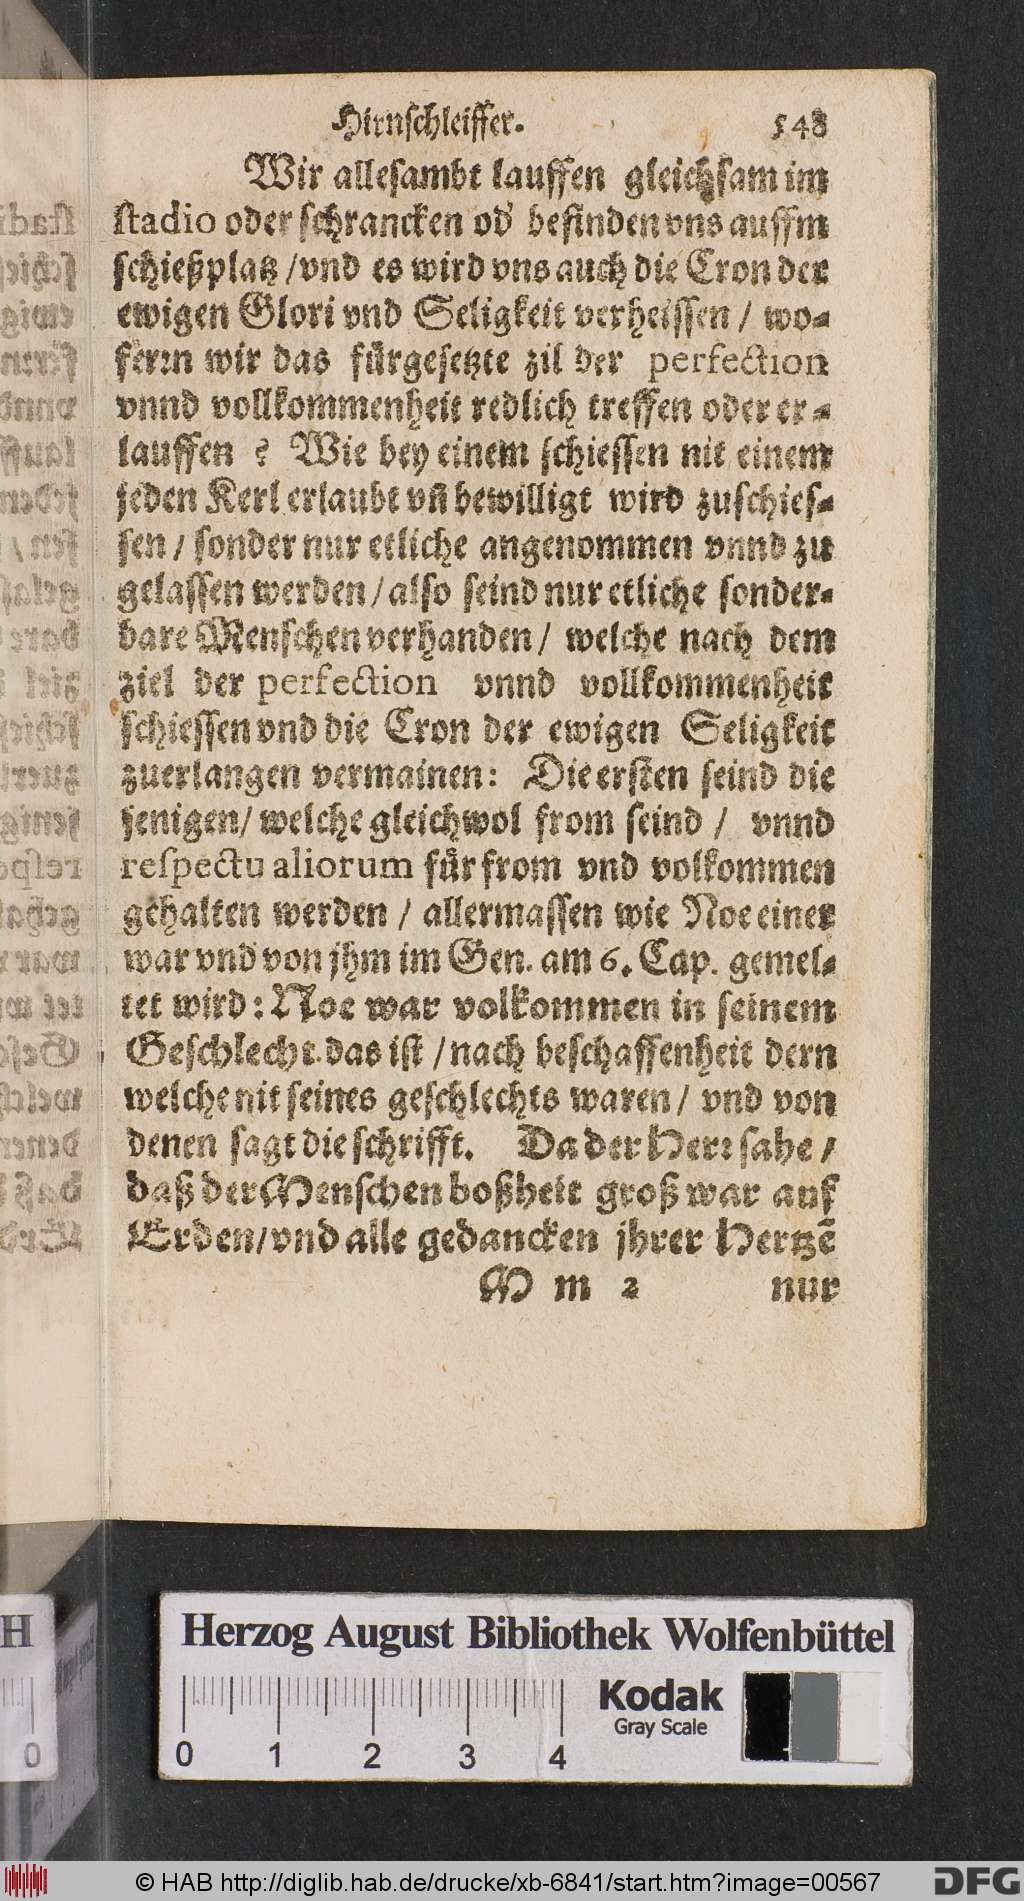 Hirnschleiffer. 548
Wir allesambt lauffen gleichsam im
stadio oder schrancken od' befinden vns auffm
schießplatz / vnd es wird vns auch die Cron der
ewigen Glori vnd Seligkeit verheissen / wo-
ferꝛn wir das fürgesetzte zil der perfection
vnnd vollkommenheit redlich treffen oder er-
lauffen ? Wie bey einem schiessen nit einem
jeden Kerl erlaubt vñ bewilligt wird zuschies-
sen / sonder nur etliche angenommen vnnd zu
gelassen werden / also seind nur etliche sonder-
bare Menschen verhanden / welche nach dem
ziel der perfection vnnd vollkommenheit
schiessen vnd die Cron der ewigen Seligkeit
zuerlangen vermainen: Die ersten seind die
jenigen / welche gleichwol from seind / vnnd
respectu aliorum für from vnd volkommen
gehalten werden / allermassen wie Noe einer
war vnd von jhm im Gen. am 6. Cap. gemel-
tet wird: Noe war volkommen in seinem
Geschlecht. das ist / nach beschaffenheit dern
welche nit seines geschlechts waren / vnd von
denen sagt die schrifft. Da der Herꝛ sahe /
daß der Menschen boßheit groß war auf
Erden / vnd alle gedancken jhrer Hertzẽ
M m 2 nur
Herzog August Bibliothek Wolfenbüttel
Kodak
Gray Scale
0 1 2 3 4
H
0
© HAB http://diglib.hab.de/drucke/xb-6841/start.htm?image=00567
DFG